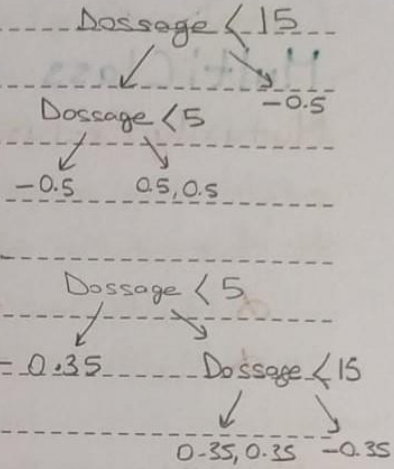 Dossage < 15
-0.5
Dossage < 5
-0.5 0.5, 0.5
Dossage < 5
= 0.35 Dossage < 15
0.35, 0.35 -0.35